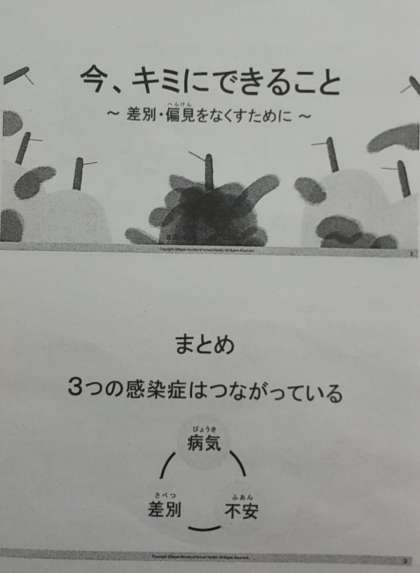 今、キミにできること
～ 差別・偏見をなくすために ～
へんけん
1
まとめ
3つの感染症はつながっている
びょうき
病気
さべつ
差別
ふあん
不安
2